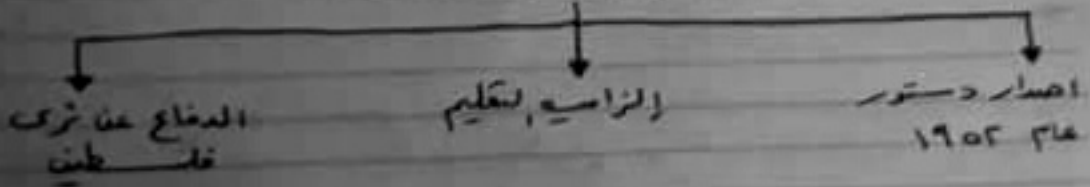 اصدار دستور
عام ١٩٥٢
إلزامية التعليم
الدفاع عن ثرى
فلسطين